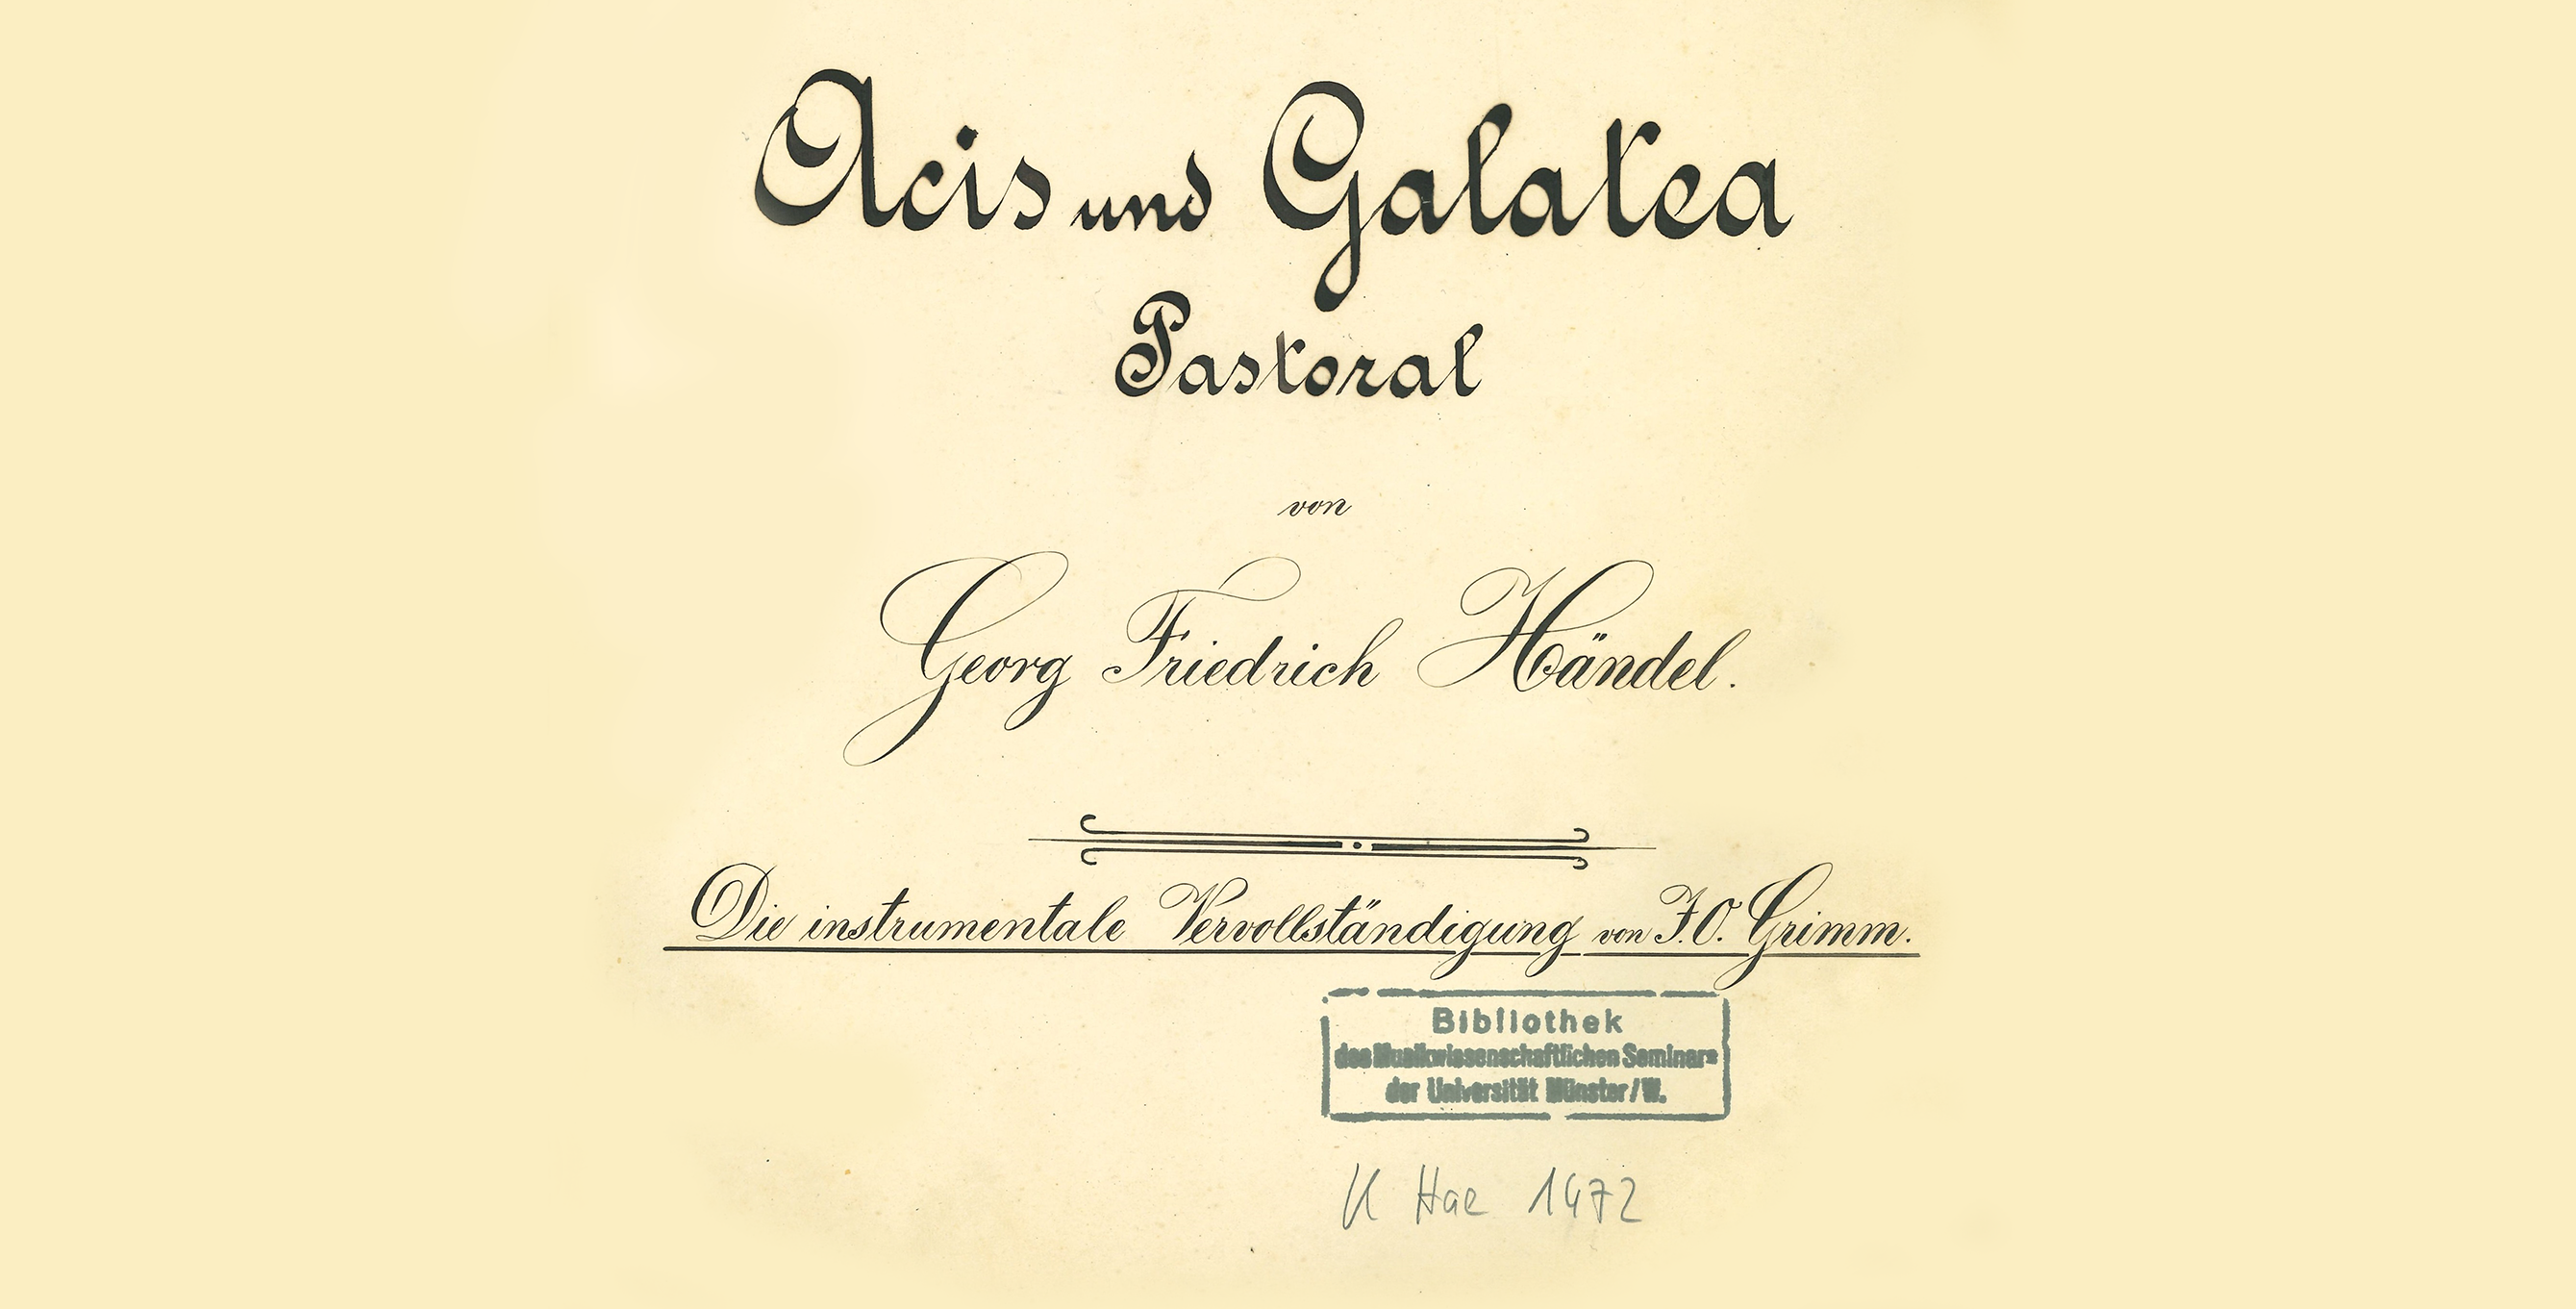 Acis und Galatea
Pastoral
von
Georg Friedrich Händel.
Die instrumentale Vervollständigung von J.O. Grimm.
Bibliothek
des Musikwissenschaftlichen Seminars
der Universität Münster/W.
Hae 1472